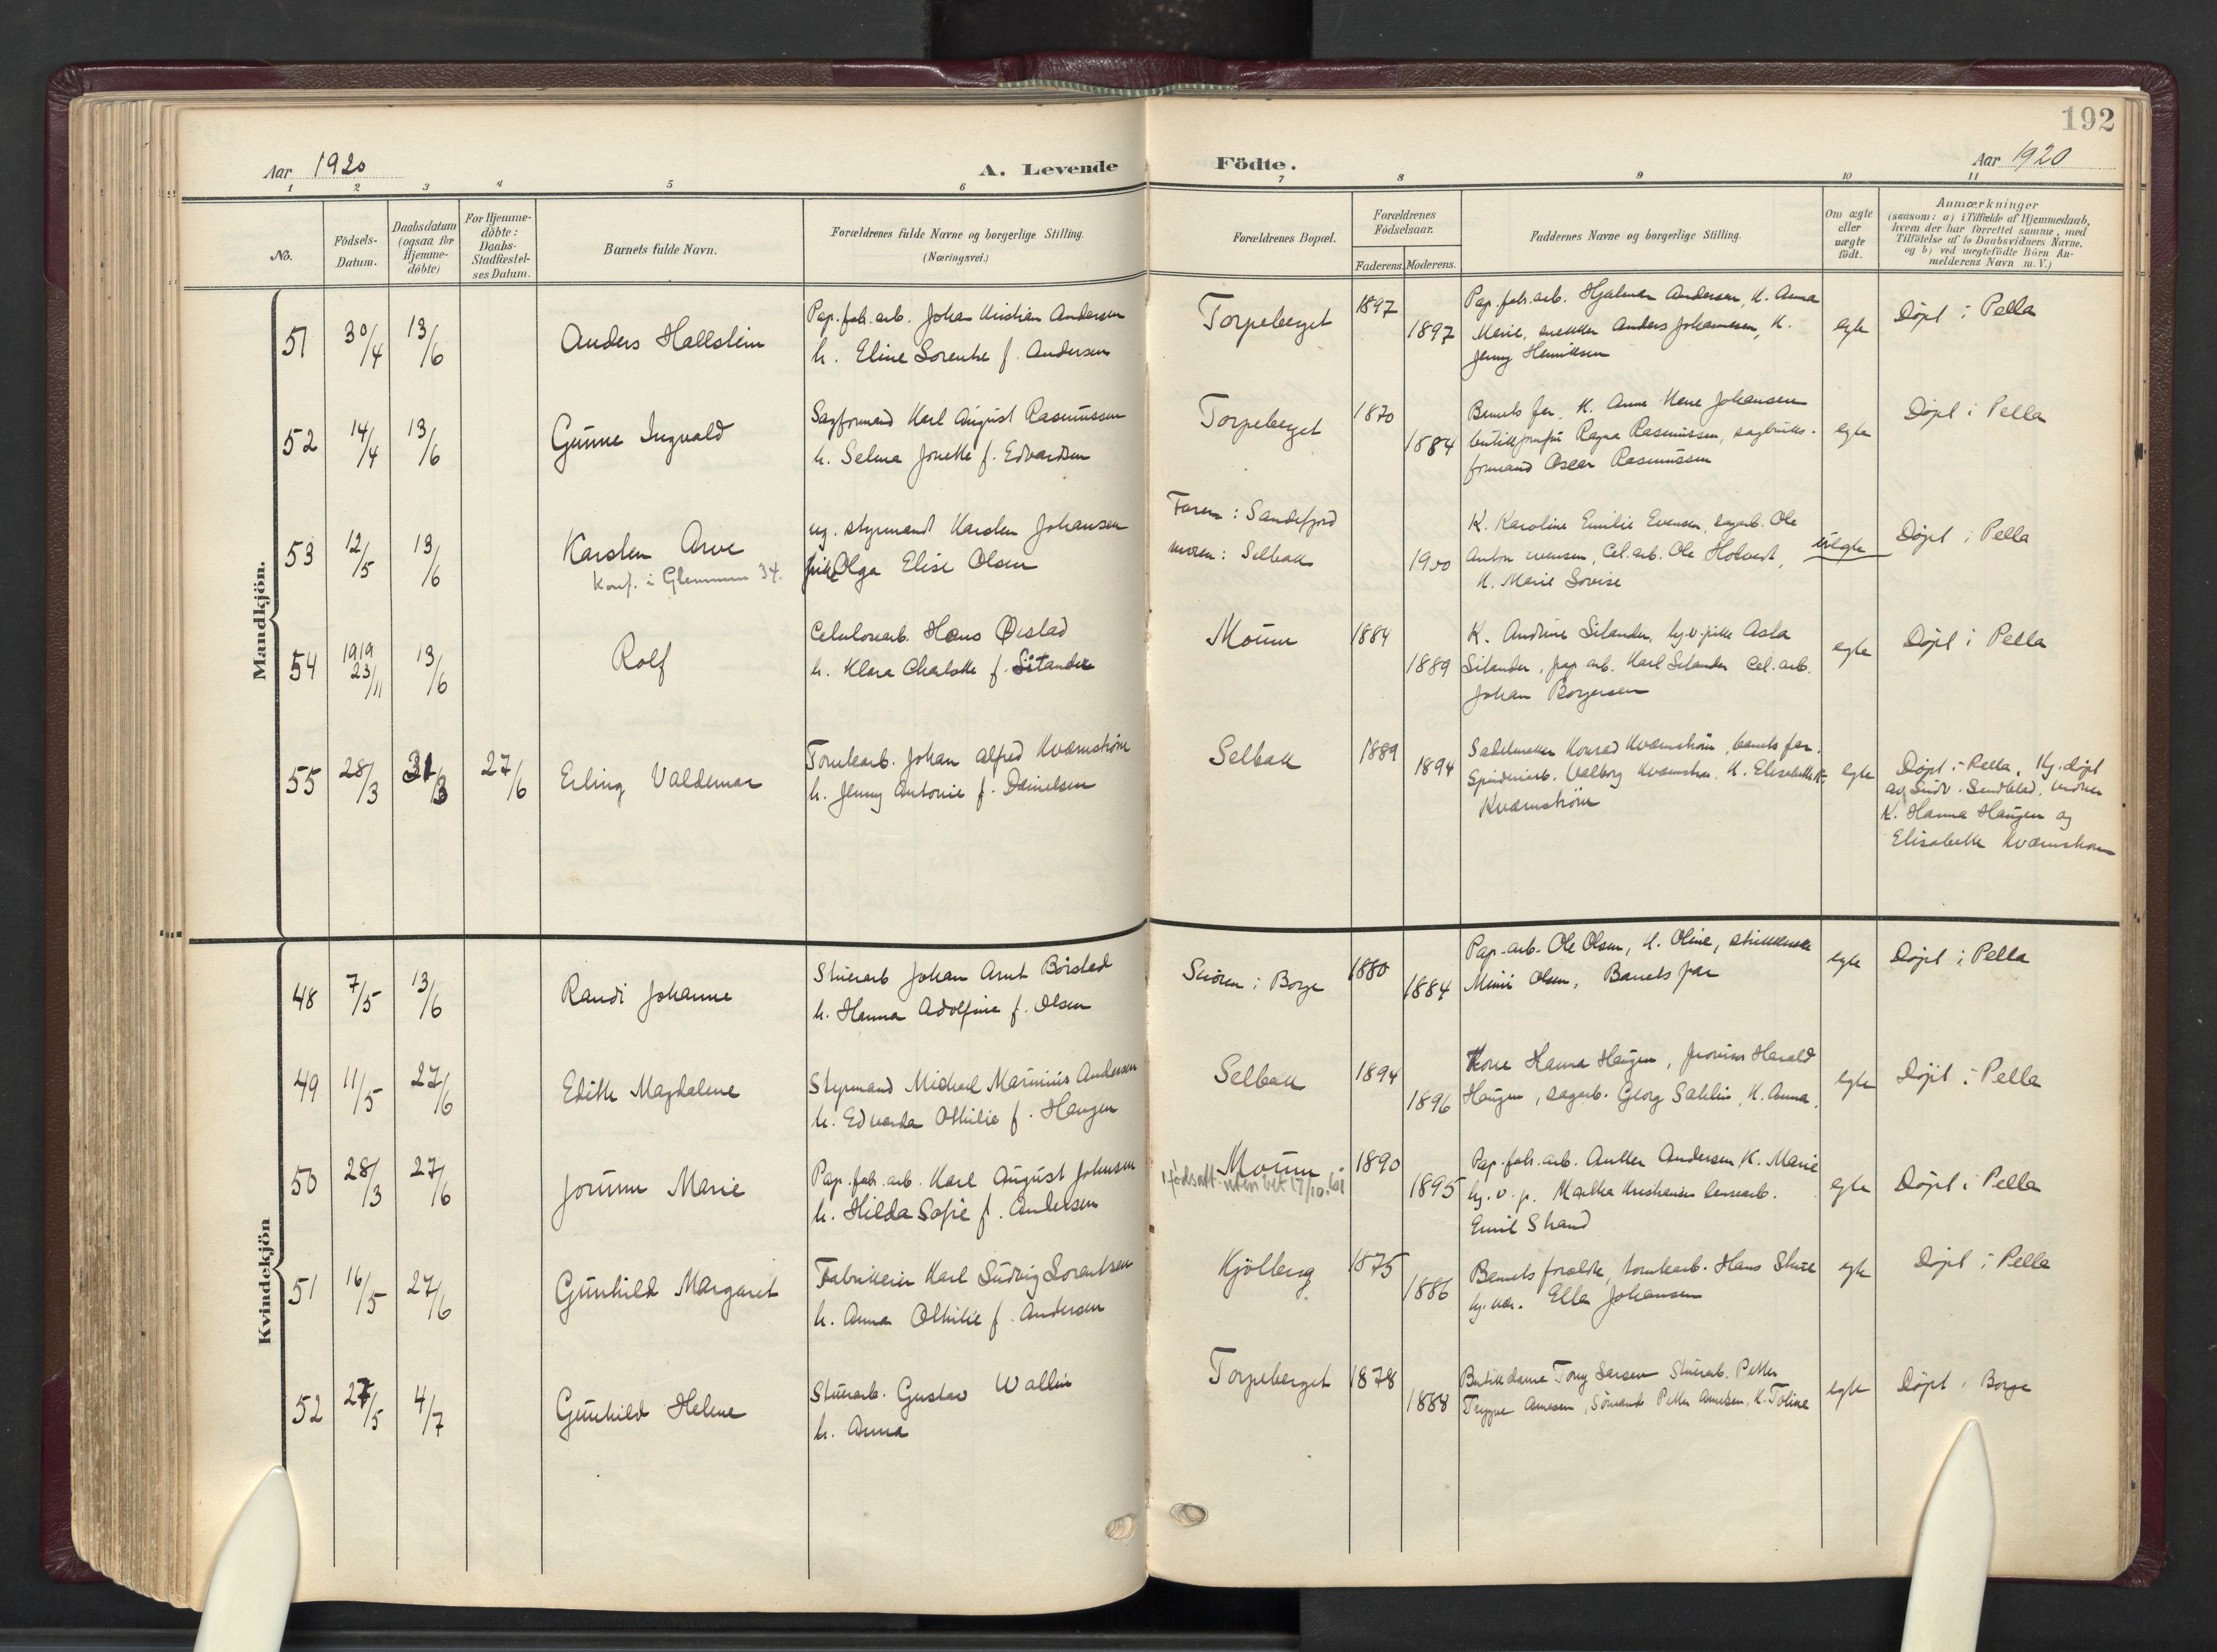 192
Aar 1920
A. Levende Födte.
Aar 1920
1 2 3 4 5 6 7 8 9 10 11
No.
Födsels-Datum.
Daabsdatum (ogsaa for Hjemme-döbte)
For Hjemme-döbte: Daabs-Stadfæstel-ses Datum.
Barnets fulde Navn.
Forældrenes fulde Navne og borgerlige Stilling.
(Næringsvei.)
Forældrenes Bopæl.
Forældrenes Födselsaar.
Faderens. Moderens.
Faddernes Navne og borgerlige Stilling.
Om ægte eller uægte födt.
Anmærkninger
(saasom: a) i Tilfælde af Hjemmedaab, hvem der har forrettet samme, med Tilföielse af to Daabsvidners Navne. og b) ved uægtefödte Börn An-melderens Navn m. V.)
Mandkjön.
51 30/4 13/6 Anders Hallstein
Pap. fab. arb. Johan Kristian Andersen
h. Eline Sorentse f. Andersen
Torpeberget 1897 1897
Pap. fab. arb. Hjalmar Andersen, K. Anna
Marie, snekker Anders Johannesen, K.
Jenny Henriksen
egte Döpt i Pella
52 14/4 13/6 Gunne Ingvald
Sagformand Karl August Rasmussen
h. Selma Jonette f. Edvardsen
Torpeberget 1870 1884
Barnets far, K. Anne Johansen
Ragna Rasmussen, sagbruks-
formand Oscar Rasmussen
egte Döpt i Pella
53 12/5 13/6 Karsten Arve
Konf. i Glemmen 34.
ug. styrmand Karsten Johansen
pike Olga Elise Olsen
Faren: Sandefjord
moren: Selbak
1900
K. Karoline Emilie Evensen, sagarb. Ole
Anton Evensen, Cel. arb. Ole Holvedt,
K. Marie Lovise
uegte Döpt i Pella
54 1919 23/11 13/6 Rolf
Celulosearb. Hans Ørstad
h. Klara Charlotte f. Silander
Moum 1884 1889
K. Andrine Silander, hj. v. pike Asta
Silander, pap. arb. Karl Silander Cel. arb.
Johan Borgersen
egte Döpt i Pella
55 28/3 31/3 27/6 Erling Valdemar
Tomtearb. Johan Alfred Kvarnström
h. Jenny Antonie f. Danielsen
Selbak 1889 1894
Sadelmaker Konrad Kvarnström, barnets far,
Spinderiarb. Valborg Kvarnström, K. Elisabeth K-
Kvarnström
egte Döpt i Pella, Hj. döpt
av Sundblad, vidner
K. Hanna Haugen og
Elisabeth Kvarnström
Kvindekjön
48 7/5 13/6 Randi Johanne
Stuerarb Johan Arnt Börstad
h. Hanna Adolfine f. Olsen
i Borge 1880 1884
Pap. arb. Ole Olsen, K. Oline,
Mimi Olsen, Barnets far
egte Döpt i Pella
49 11/5 27/6 Edith Magdalene
Styrmand Michael Marinius Andersen
h. Edvarda Othilie f. Haugen
Selbak 1894 1896
Kone Hanna Haugen, Harald
Haugen, sagarb. Georg Sahlin, K. Anna.
egte Döpt i Pella
50 28/3 27/6 Jorunn Marie
Pap. fab. arb. Karl August Johnsen
h. Hilda Sofie f. Andersen
Moum
födsatt. uten vet 17/10.61
1890 1895
Pap. fab. arb. Anker Andersen, K. Marie
hj. v. p. Martha Kristiansen
Emil Strand
egte Döpt i Pella
51 16/5 27/6 Gunhild Margaret
Fabrikeier Karl Ludvig Sorentsen
h. Anna Othilie f. Andersen
Kjölberg 1875 1886
Barnets forældre, tomtearb. Hans
hj. vær. Ella Johansen
egte Döpt i Pella
52 27/5 4/7 Gunhild Helene
Stuerarb. Gustav Wallin
h. Anna
Torpeberget 1878 1888
Butikdame Tony Larsen Stuerarb. Petter
Trygve Arnesen, Sömand Petter Arnesen, K. Toline
egte Döpt i Borge